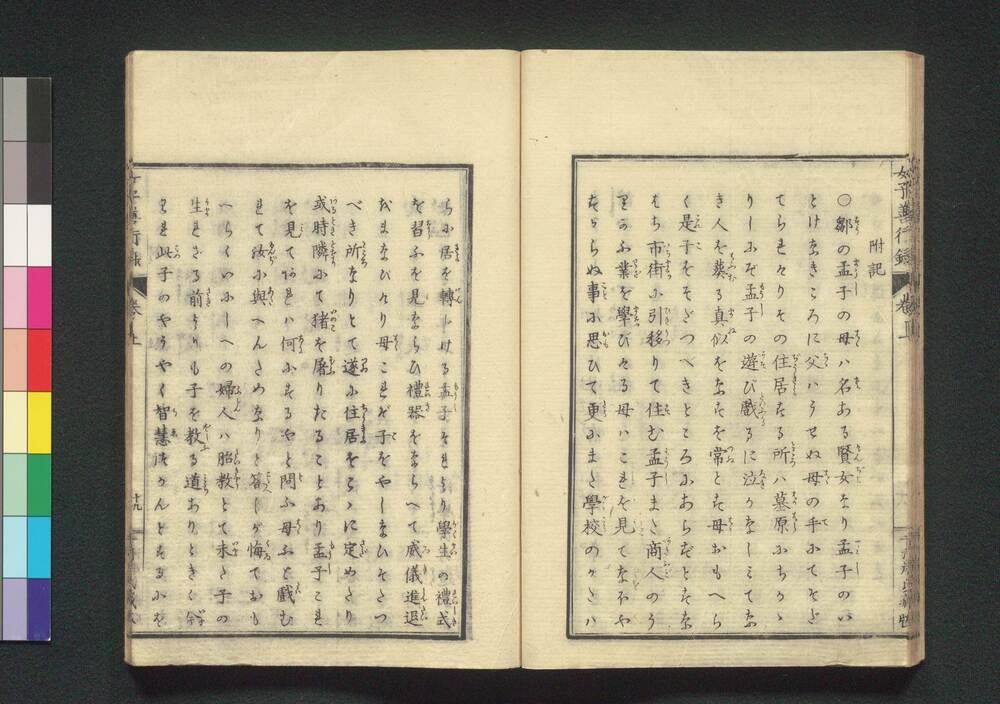 附記
○鄒の孟子の母ハ名ある賢女なり孟子のい
とけなきころに父ハうせぬ母の手にてそだ
てられたりその住居する所ハ墓原にちかゝ
りしにぞ孟子の遊び戯るに泣かなしミてな
き人を葬る真似をなすを常とす母おもへら
く是子をそだつべきところにあらずとすな
はち市街に引移りて住む孟子また商人のう
りかふ業を學びたる母ハこれを見てなほや
すからぬ事に思ひて更にまた學校のかたハ
らに居を轉しける孟子それより學生の禮式
を習ふを見ならひ禮器をならべて威儀進退
をまなびたり母これぞ子をやしなひそだつ
べき所なりとて遂に住居をこゝに定めたり
或時隣にて猪を屠りたることあり孟子これ
を見てあれハ何にするやと問ふ母ふと戯む
れて汝に與へんためなりと答しが悔ておも
へらくいにしへの婦人ハ胎教とて未だ子の
生れざる前よりも子を教る道ありときく今
われ此子のやうやく智慧づかんとするにそ
女子善行録 巻五上
十九